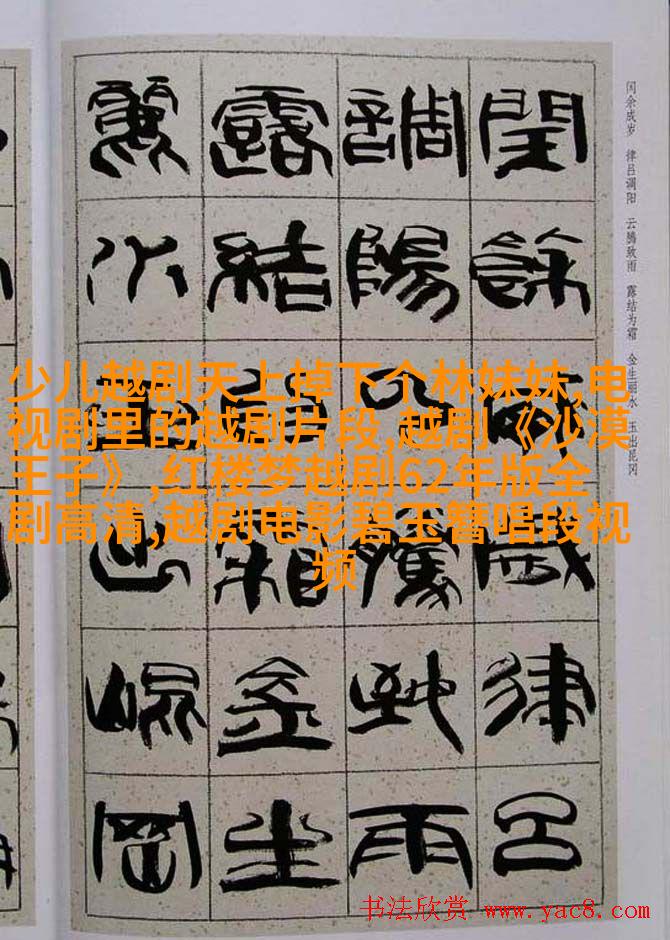 闰余成岁 律吕调阳 云腾致雨 露结为霜 金生丽水 玉出昆冈
閏餘成歲律呂
調陽云騰致雨
露結為霜金生
麗水玉出崐岡
少儿越剧天上掉下个林妹妹,电
视剧里的越剧片段,越剧《沙漠
王子》,红楼梦越剧62年版全
剧高清,越剧电影碧玉簪唱段视
频
书法欣赏 www.yac8.com